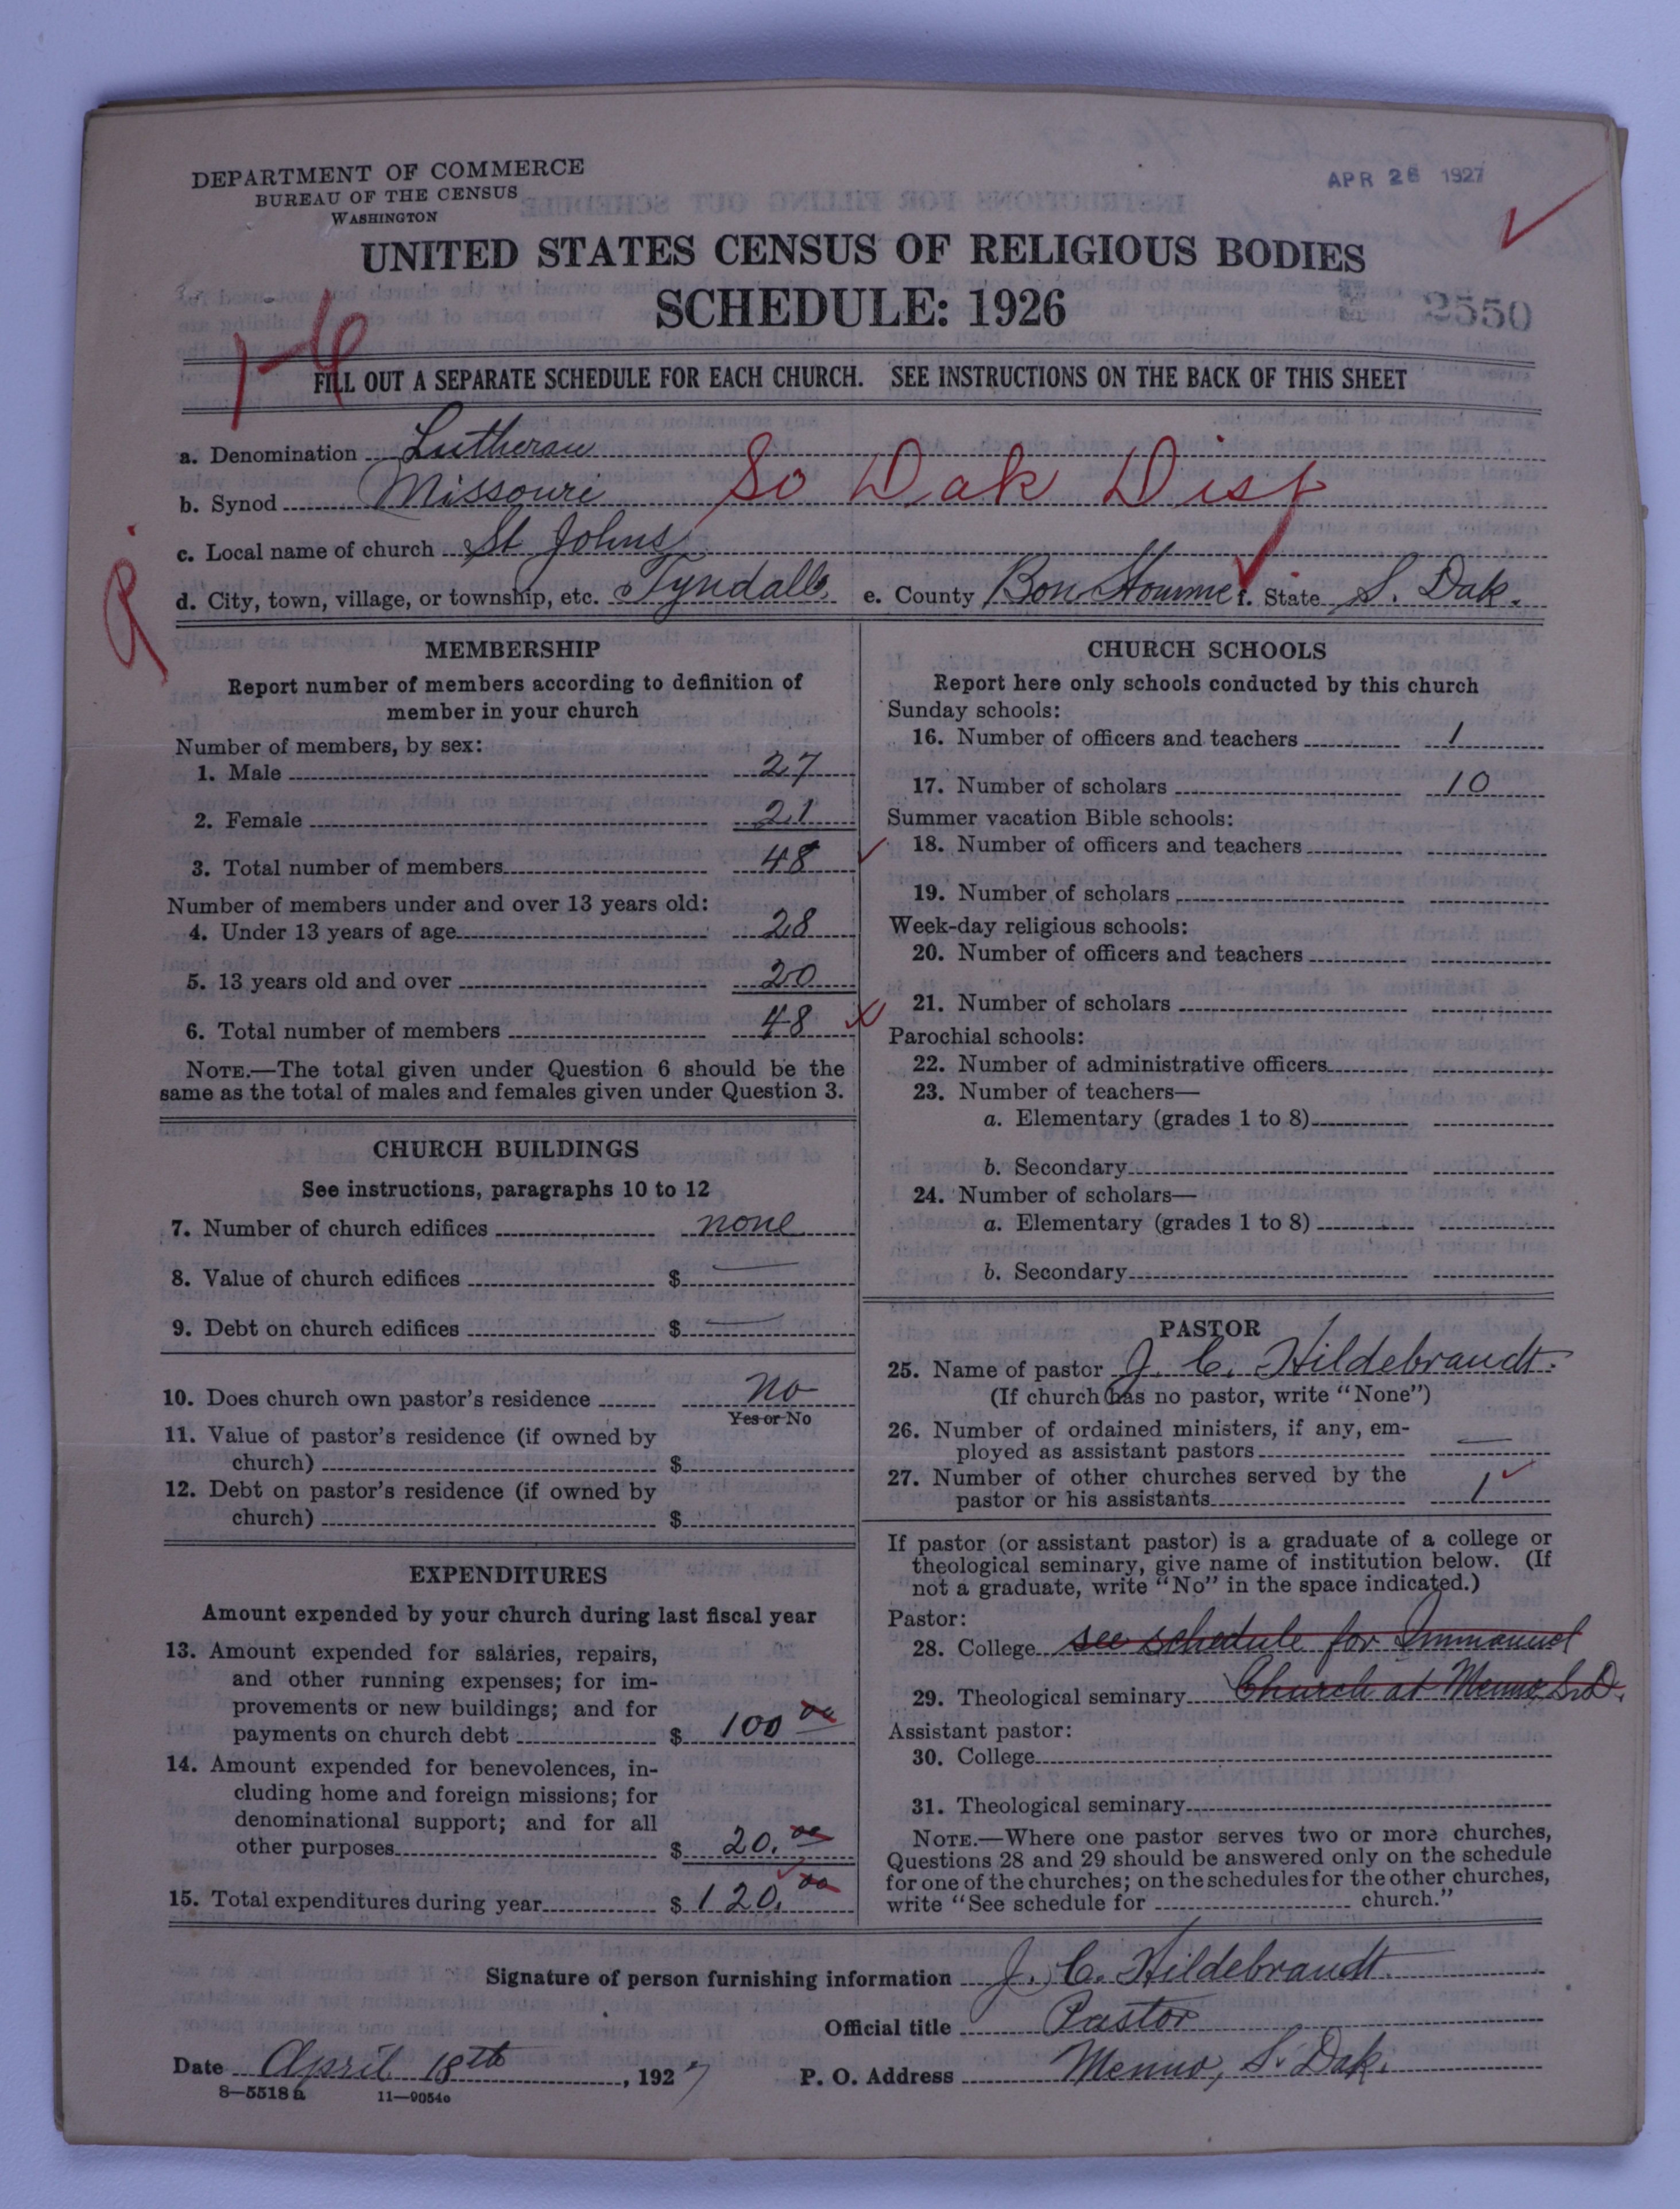 DEPARTMENT OF COMMERCE
BUREAU OF THE CENSUS
WASHINGTON
APR 26 1927
UNITED STATES CENSUS OF RELIGIOUS BODIES
SCHEDULE: 1926
2550
1-6
FILL OUT A SEPARATE SCHEDULE FOR EACH CHURCH. SEE INSTRUCTIONS ON THE BACK OF THIS SHEET
a. Denomination Lutheran
b. Synod Missouri So Dak Dist
c. Local name of church St Johns
d. City, town, village, or township, etc. Tyndall e. County Bon Homme f. State S. Dak.
MEMBERSHIP
Report number of members according to definition of
member in your church
Number of members, by sex:
1. Male 27
2. Female 21
3. Total number of members 48
Number of members under and over 13 years old:
4. Under 13 years of age 28
5. 13 years old and over 20
6. Total number of members 48
NOTE.—The total given under Question 6 should be the
same as the total of males and females given under Question 3.
CHURCH BUILDINGS
See instructions, paragraphs 10 to 12
7. Number of church edifices none
8. Value of church edifices $ —
9. Debt on church edifices $ —
10. Does church own pastor's residence no
Yes or No
11. Value of pastor's residence (if owned by
church) $
12. Debt on pastor's residence (if owned by
church) $
EXPENDITURES
Amount expended by your church during last fiscal year
13. Amount expended for salaries, repairs,
and other running expenses; for im-
provements or new buildings; and for
payments on church debt $ 100 00
14. Amount expended for benevolences, in-
cluding home and foreign missions; for
denominational support; and for all
other purposes $ 20.00
15. Total expenditures during year $ 120.00
CHURCH SCHOOLS
Report here only schools conducted by this church
Sunday schools:
16. Number of officers and teachers 1
17. Number of scholars 10
Summer vacation Bible schools:
18. Number of officers and teachers
19. Number of scholars
Week-day religious schools:
20. Number of officers and teachers
21. Number of scholars
Parochial schools:
22. Number of administrative officers
23. Number of teachers—
a. Elementary (grades 1 to 8)
b. Secondary
24. Number of scholars—
a. Elementary (grades 1 to 8)
b. Secondary
PASTOR
25. Name of pastor J. C. Hildebrandt.
(If church has no pastor, write "None")
26. Number of ordained ministers, if any, em-
ployed as assistant pastors —
27. Number of other churches served by the
pastor or his assistants 1
If pastor (or assistant pastor) is a graduate of a college or
theological seminary, give name of institution below. (If
not a graduate, write "No" in the space indicated.)
Pastor:
28. College see schedule for Immanuel
29. Theological seminary Church at Menno, S.D.
Assistant pastor:
30. College
31. Theological seminary
NOTE.—Where one pastor serves two or more churches,
Questions 28 and 29 should be answered only on the schedule
for one of the churches; on the schedules for the other churches,
write "See schedule for church."
Signature of person furnishing information J. C. Hildebrandt.
Official title Pastor
Date April 18th, 1927 P. O. Address Menno, S. Dak.
8—5518 a 11—9054o